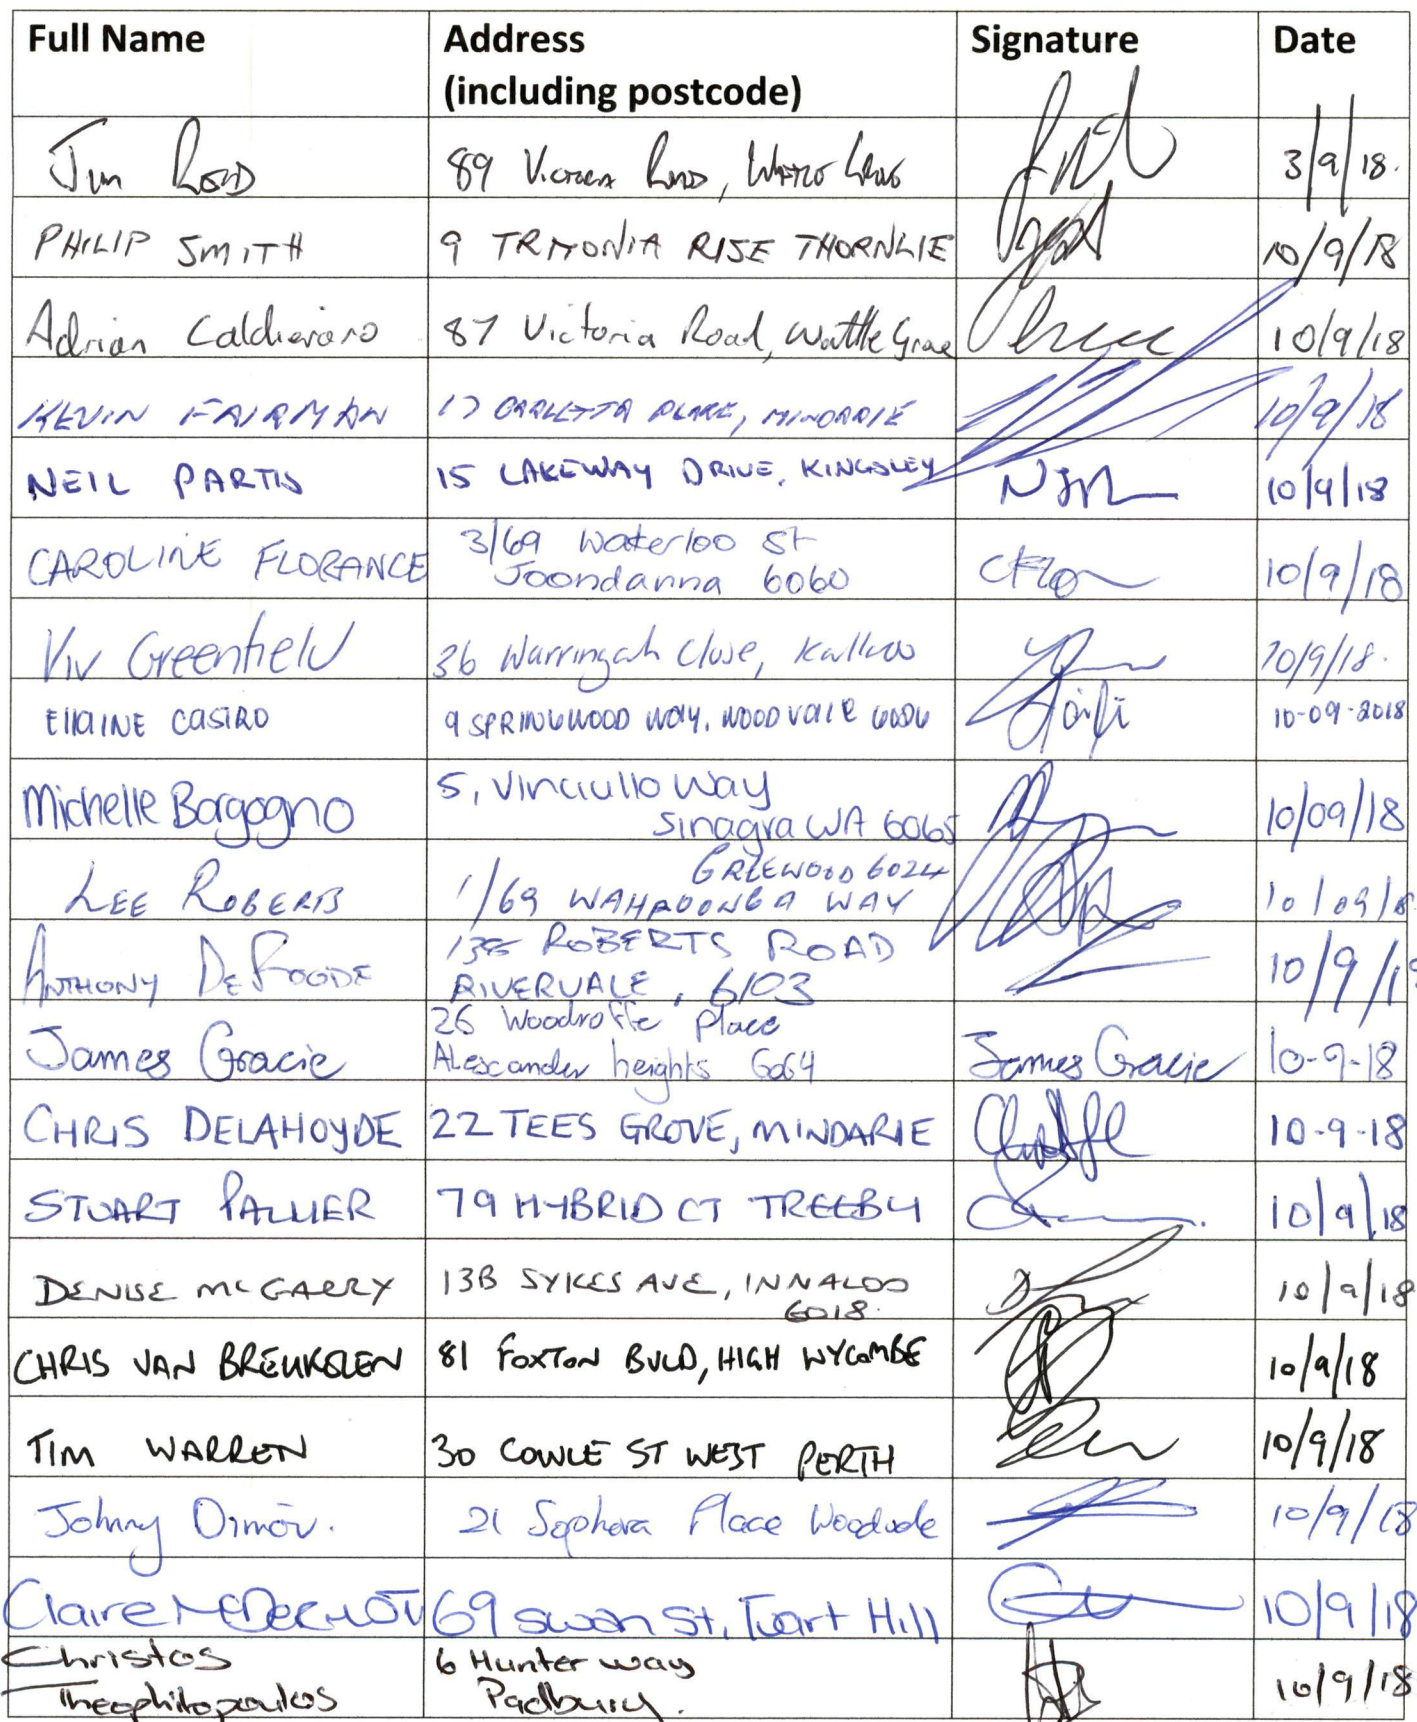 Full Name Address Signature Date
(including postcode)
Jim Road 89 Victoria Road, Wattle Grove 3/9/18.
PHILIP SMITH 9 TRITONIA RISE THORNLIE 10/9/18
Adrian Caldieraro 87 Victoria Road, Wattle Grove 10/9/18
KEVIN FAIRMAN 17 PLACE, MINDARIE 10/9/18
NEIL PARTIS 15 LAKEWAY DRIVE, KINGSLEY 10/9/18
CAROLINE FLORANCE 3/69 Waterloo St
Joondanna 6060 10/9/18
Viv Greenfield 36 Warringah Close, Kallaroo 10/9/18.
EllaINE CASTRO 9 SPRINGWOOD WAY, WOODVALE 6026 10-09-2018
Michelle Borgogno 5, Vinciullo Way
Sinagra WA 6065 10/09/18
LEE ROBERTS GREEWOOD 6024
1/69 WAHROONGA WAY 10/09/18
ANTHONY DE ROADS ROBERTS ROAD
RIVERVALE, 6103 10/9/18
James Gracie 26 Woodroffe Place
Alexcander heights 6064 James Gracie 10-9-18
CHRIS DELAHOYDE 22 TEES GROVE, MINDARIE 10-9-18
STUART PALMER 79 HYBRID CT TREEBY 10/9/18
DENISE McGARRY 13B SYKES AVE, INNALOO
6018. 10/9/18
CHRIS VAN BREUKELEN 81 FOXTON BVLD, HIGH WYCOMBE 10/9/18
TIM WARREN 30 COWLE ST WEST PERTH 10/9/18
Johnny Dimov. 21 Sophora Place Woodvale 10/9/18
Claire McDERMOTT 69 Swan St, Tuart Hill 10/9/18
Christos 6 Hunter way
Theophilopoulos Padbury. 10/9/18